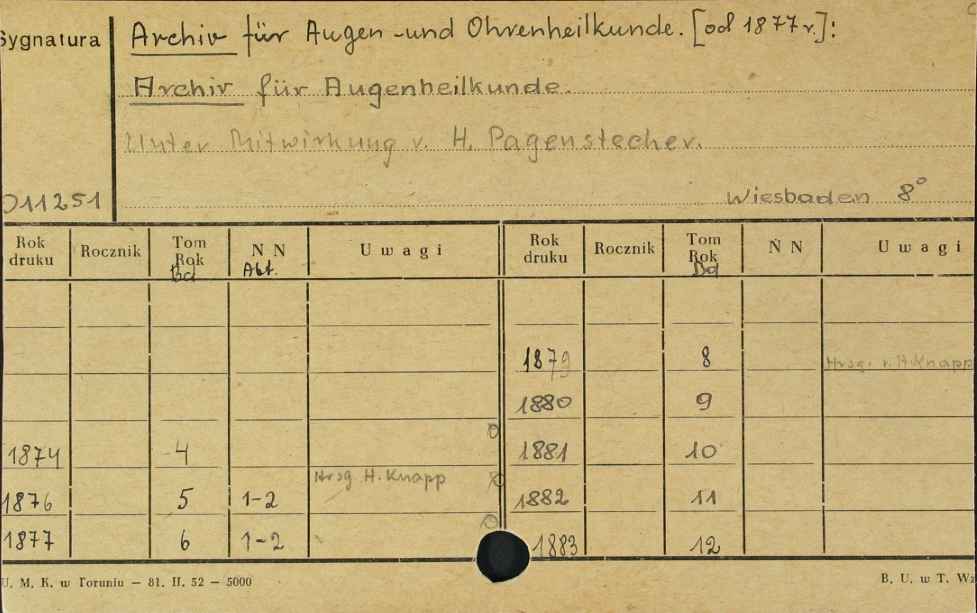 Sygnatura
Archiv für Augen-und Ohrenheilkunde. [od 1877 r.]:
Archiv für Augenheilkunde.
Unter Mitwirkung v. H. Pagenstecher.
011251
Wiesbaden 8°
Rok druku Rocznik Tom Rok Bd N N Abt. U w a g i Rok druku Rocznik Tom Rok Bd N N U w a g i
1879 8 Hrsg. v. H. Knapp
1880 9
1874 4 1881 10
1876 5 1-2 Hrsg H. Knapp 1882 11
1877 6 1-2 1883 12
U. M. K. w Toruniu — 81. II. 52 — 5000 B. U. w T. Wz